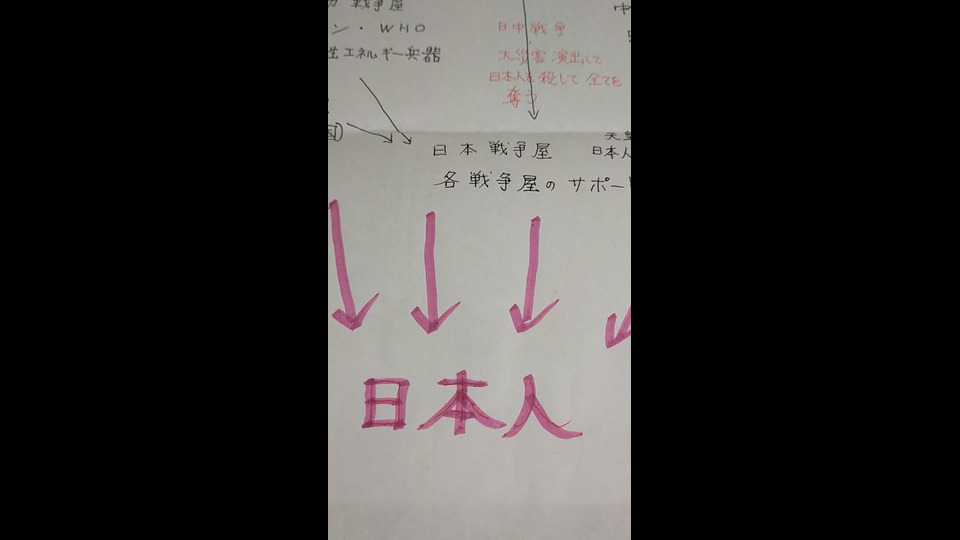 戦争屋
ン・WHO
性エネルギー兵器
日中戦争
大災害演出して
日本人を殺して全てを
奪う
国
日本戦争屋
日本人
各戦争屋のサポー
日本人